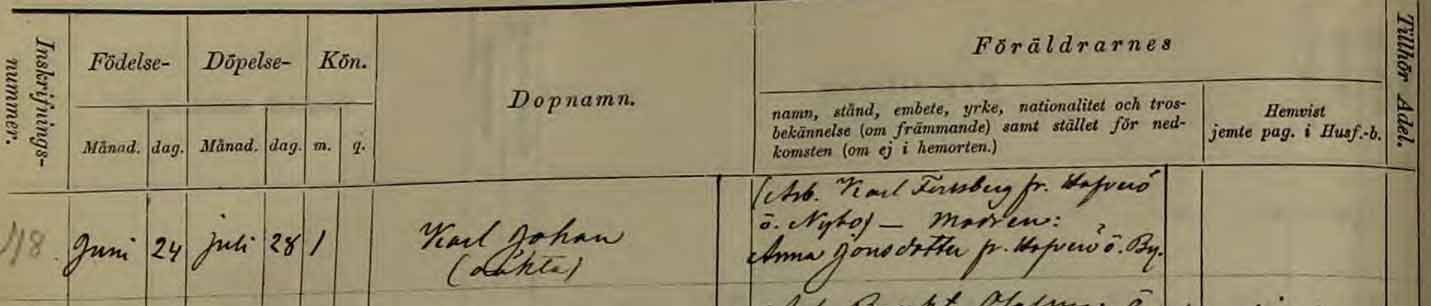 Inskrifnings-
nummer.
Födelse-
Döpelse-
Kön.
Dopnamn.
Föräldrarnes
Tillhör Adel.
Månad. dag. Månad. dag. m. q.
namn, stånd, embete, yrke, nationalitet och tros-
bekännelse (om främmande) samt stället för ned-
komsten (om ej i hemorten.)
Hemvist
jemte pag. i Husf.-b.
48. Juni 24 Juli 28 1
Karl Johan
(oäkta)
(Arb. Karl Forssberg fr. Hafverö
ö. Nybo) — Modren:
Anna Jonsdotter fr. Hafverö ö. By.